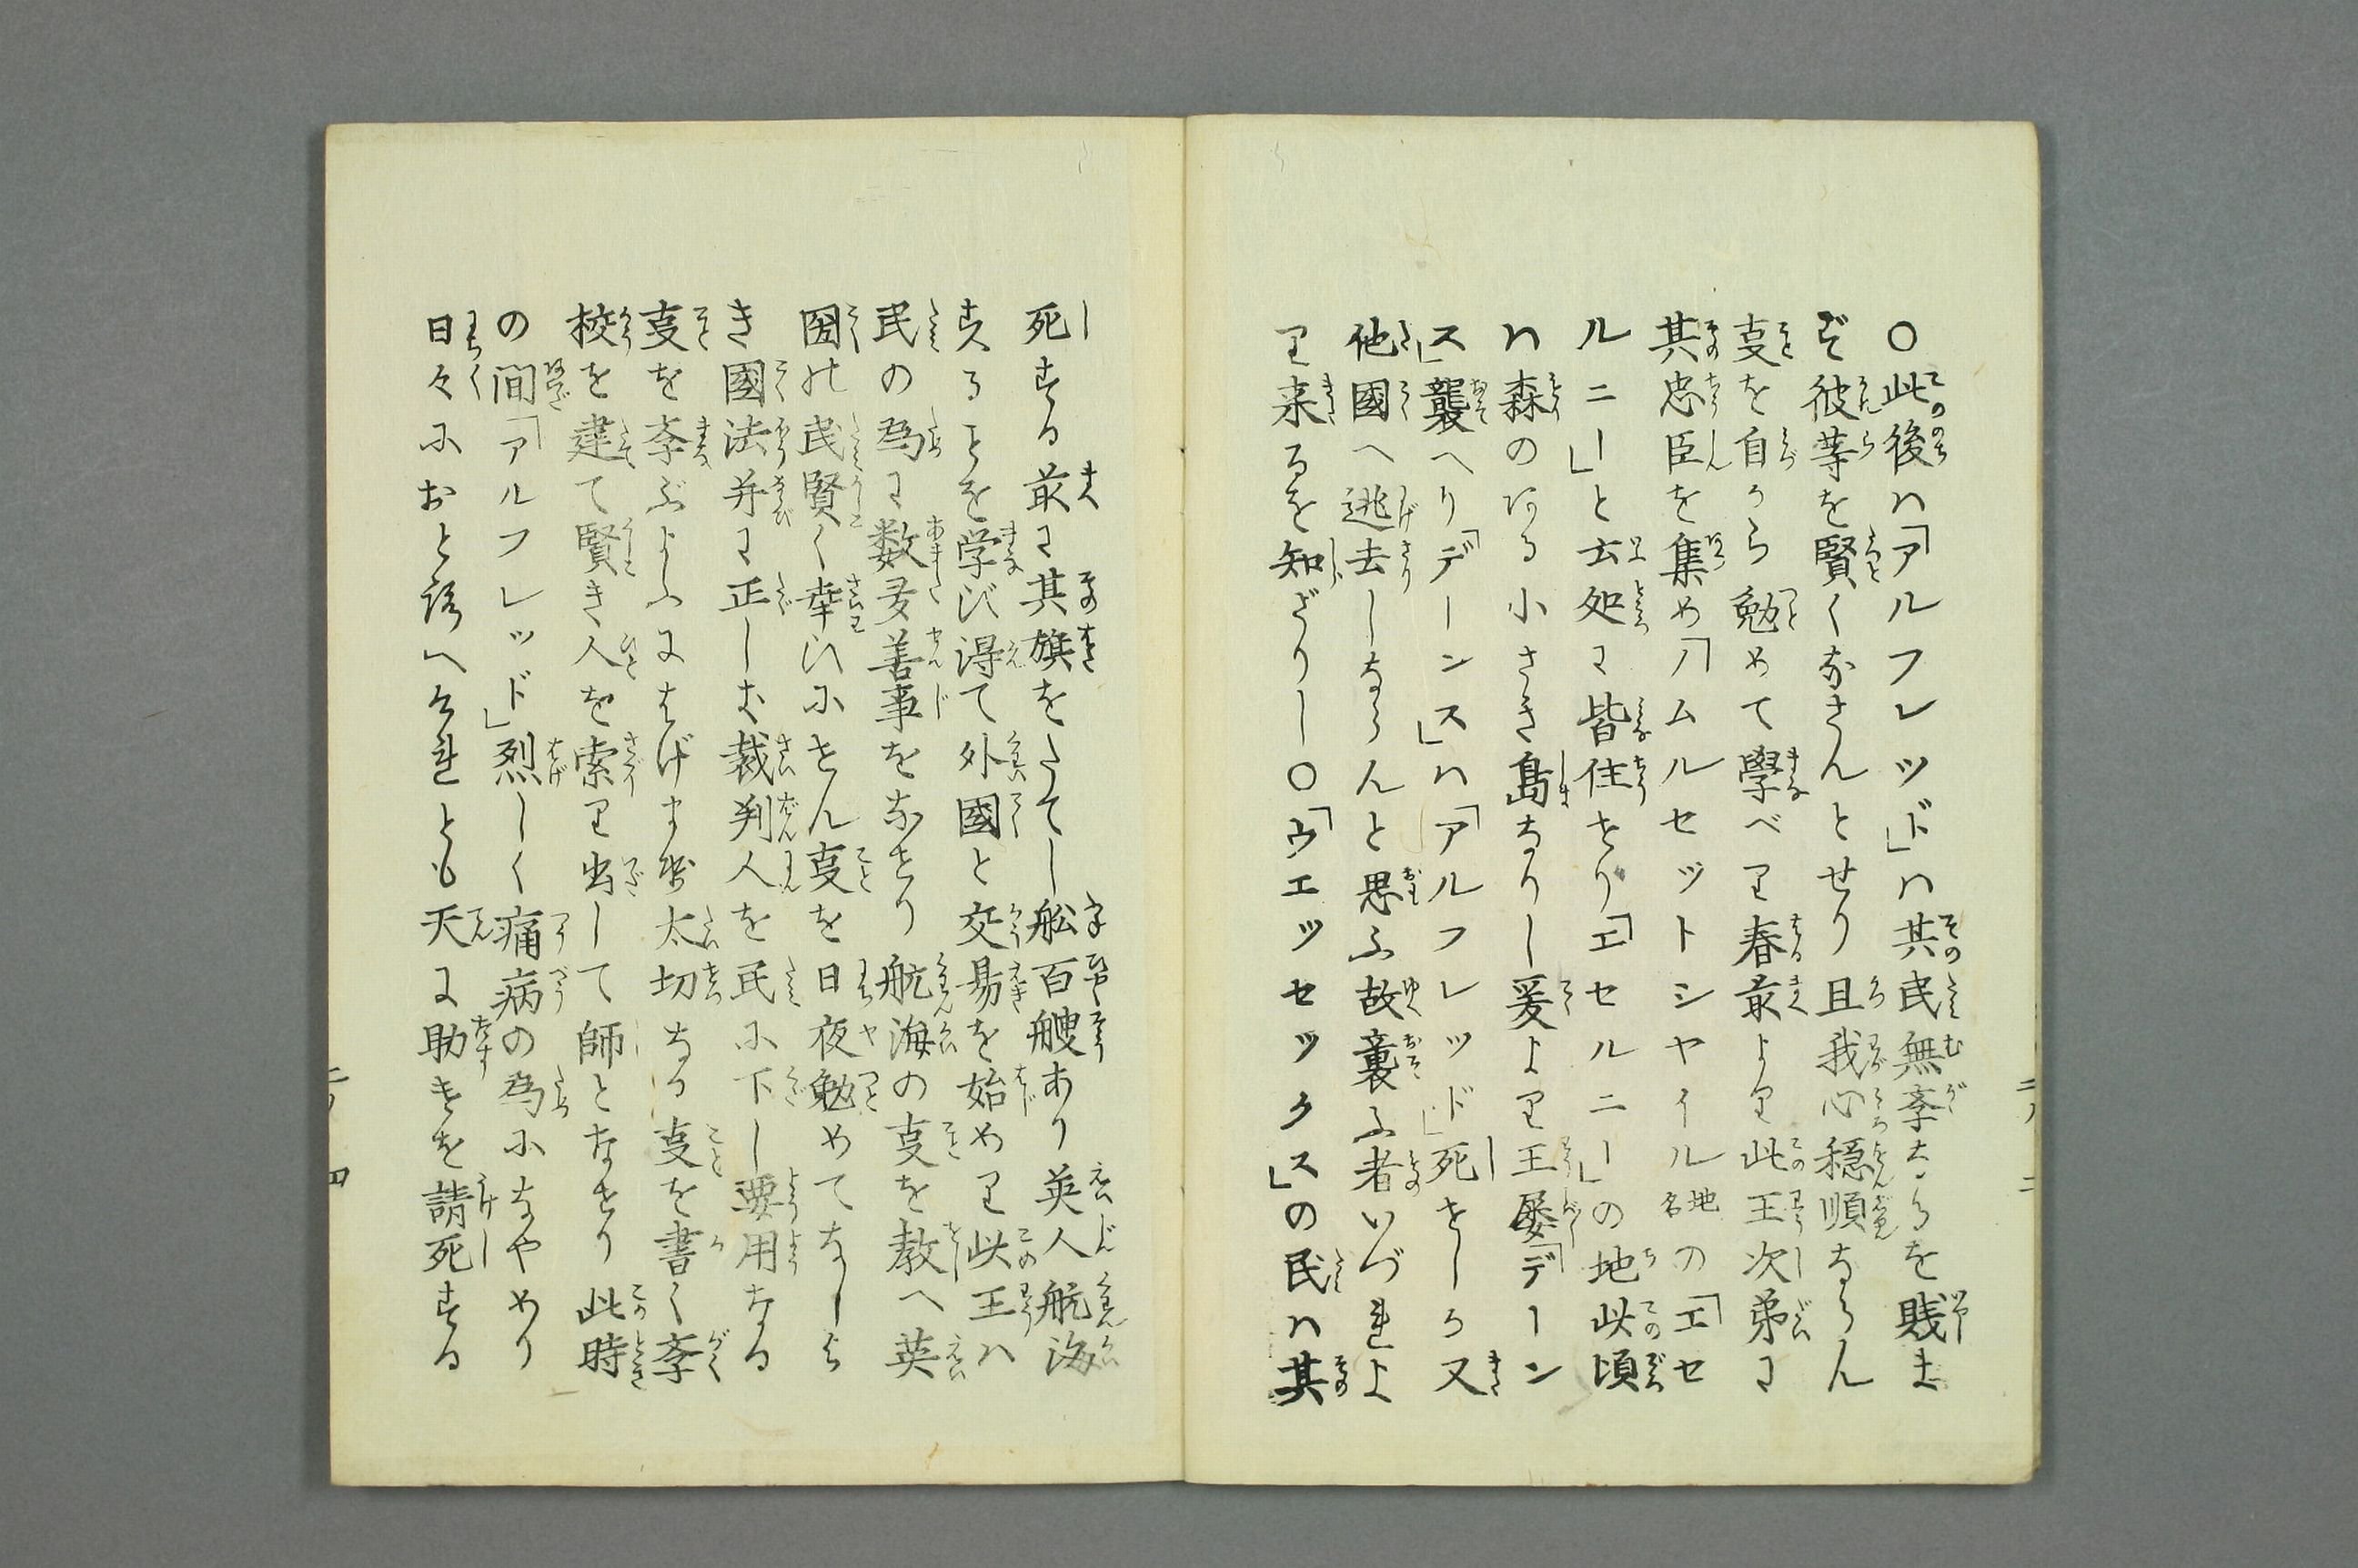 ○此後ハ「アルフレッド」ハ其民無斈なるを賤ま
ず彼等を賢くなさんとせり且我心穏順ならん
亊を自から勉めて學べり春最より此王次第に
其忠臣を集め「ソムルセットシヤイル地名の「エセ
ルニー」と云処に皆住せり「エセルニー」の地此頃
ハ森のある小さき島なりし爰より王屡「デーン
ス」襲へり「デーンス」ハ「アルフレッド」死せしか又
他國へ逃去しならんと思ふ故襲ふ者いづれよ
り来るを知ざりし○「ウエッセックス」の民ハ其
死する最に其旗をたてし舩百艘あり英人航海
することを学び得て外國と交易を始めり此王ハ
民の為に数多善事をなせり航海の亊を教へ英
国の民賢く幸ひにせん亊を日夜勉めてなしよ
き國法并に正しき裁判人を民に下し要用なる
亊を斈ぶようにはげませ太切なる亊を書く斈
校を建て賢き人を索り出して師となせり此時
の間「アルフレッド」烈しく痛病の為になやめり
日々におとろへけれとも天に助けを請死する